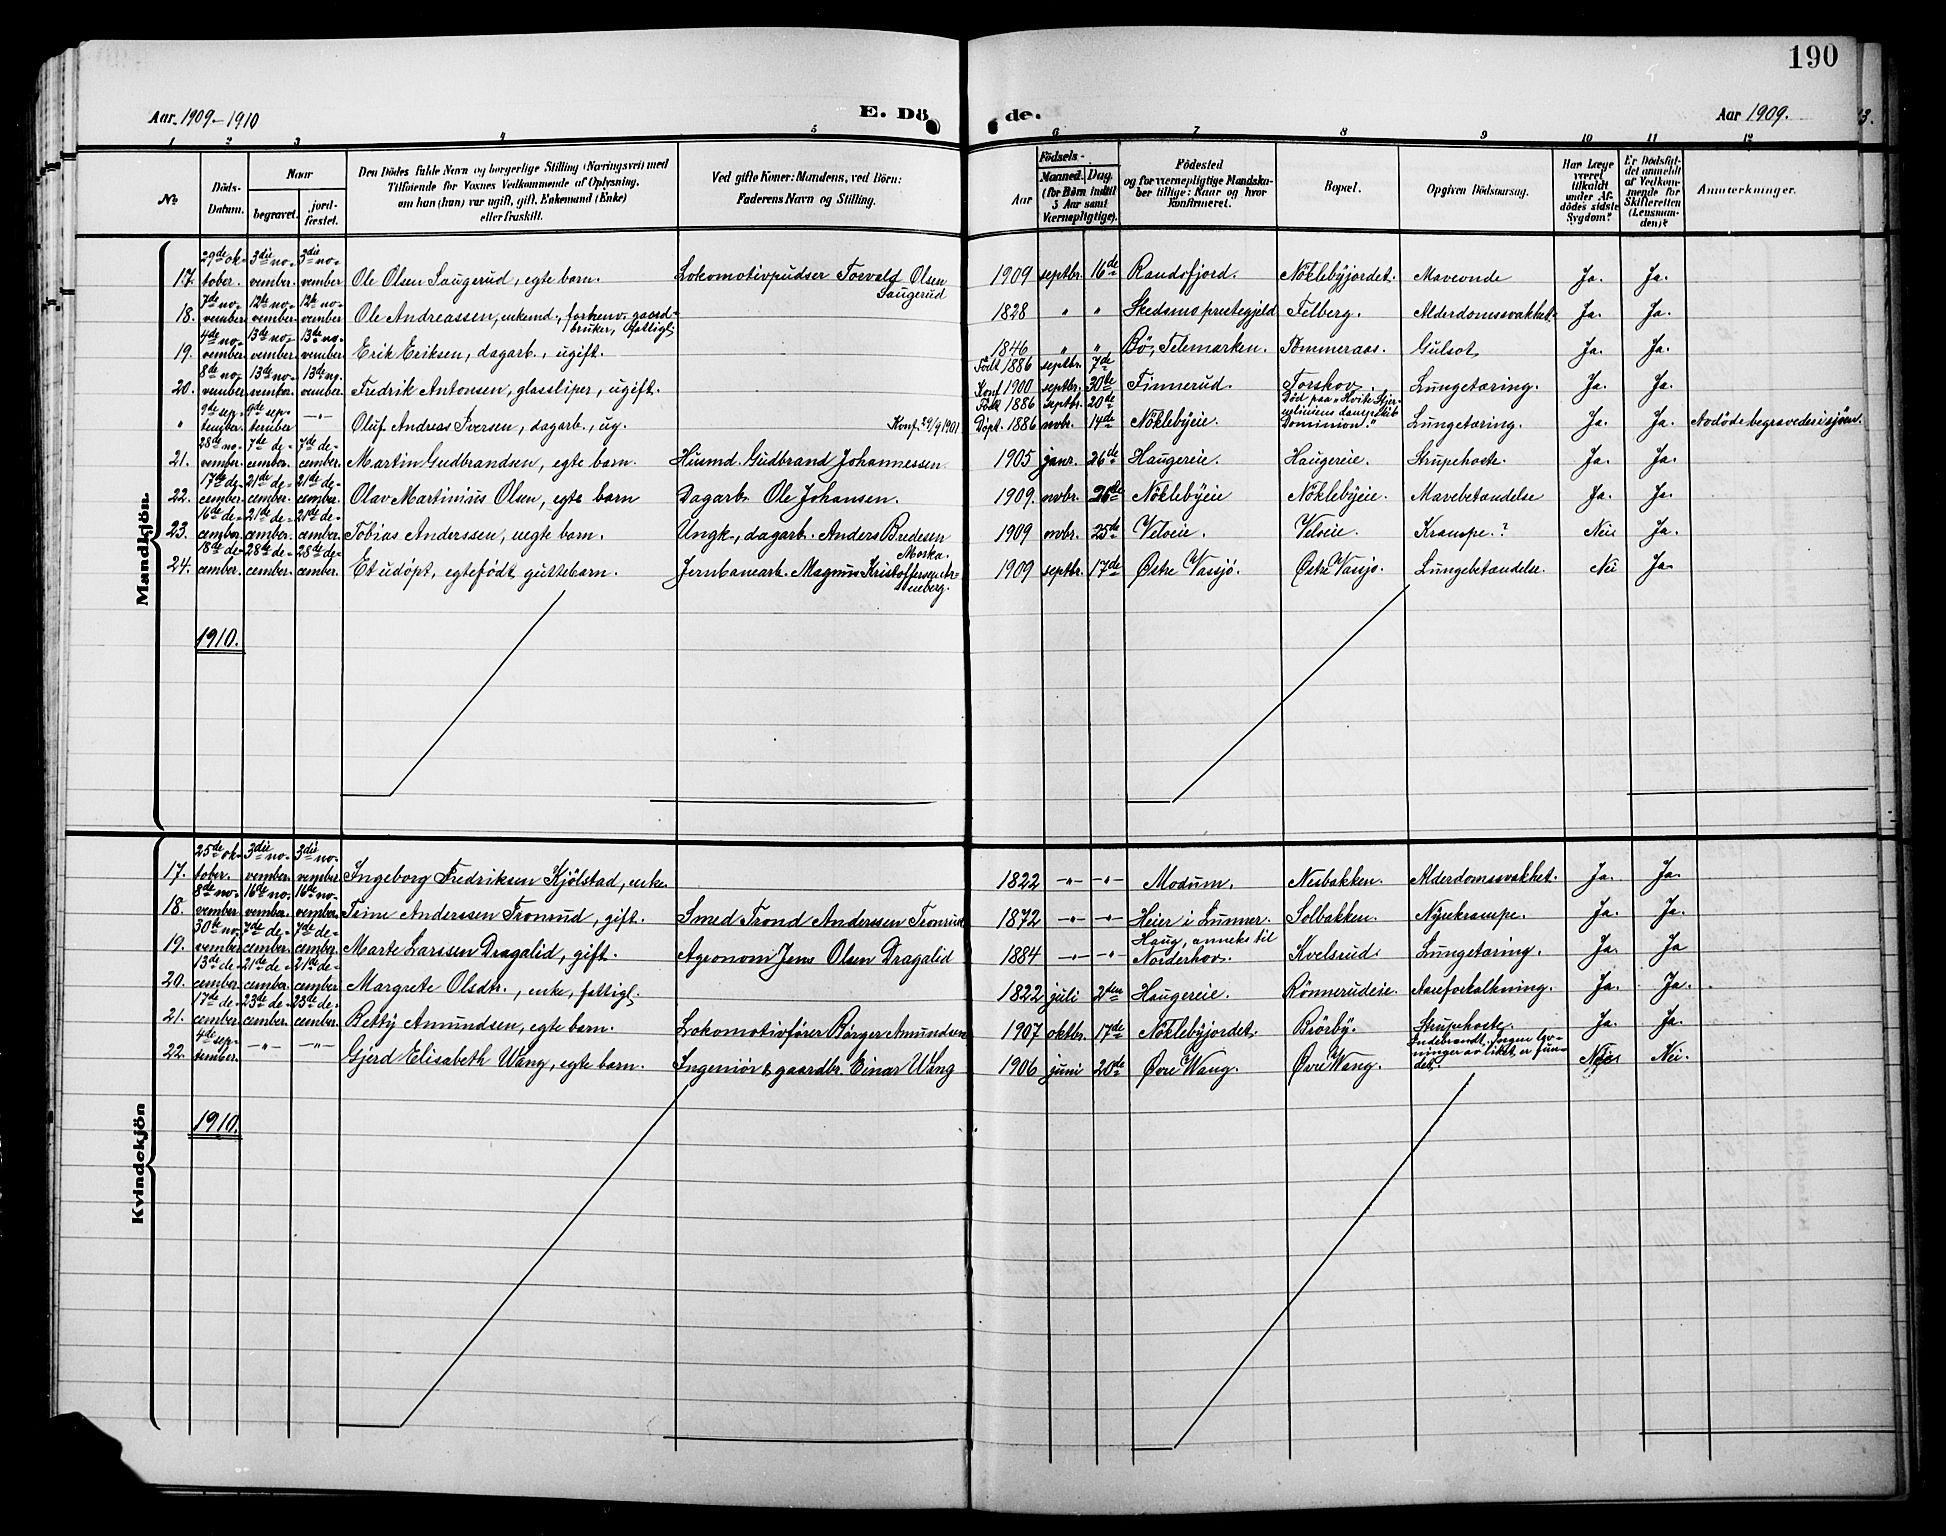 190
Aar 1909-1910 E. Dö de. Aar 1909. 13.
1 2 3 4 5 6 7 8 9 10 11 12
No
Döds-Datum.
Naar
begravet.
jord-fæstet.
Den Dödes fulde Navn og borgerlige Stilling (Næringsvei) med
Tilföiende for Voxnes Vedkommende af Oplysning,
om han (hun) var ugift, gift, Enkemand (Enke)
eller fraskilt.
Ved gifte Koner: Mandens, ved Börn:
Faderens Navn og Stilling.
Födsels-
Aar
Maaned. Dag
(for Börn indtil
5 Aar samt
Værnepligtige).
Födested
og for værnepligtige Mandska-
ber tillige: Naar og hvor
Konfirmeret.
Bopæl.
Opgiven Dödsaarsag.
Har Læge
været
tilkaldt
under Af-
dödes sidste
Sygdom?
Er Dödsfal-
det anmeldt
af Vedkom-
mende for
Skifteretten
(Lensman-
den)?
Anmærkninger.
Mandkjön.
17. 29de oktober. 3die november. 3die november Ole Olsen Saugerud, egte barn. Lokomotivpudser Torvald Olsen Saugerud 1909 septbr. 16de Randsfjord. Nöklebyjordet. Maveonde Ja. Ja.
18. 7de november 12te november. 12te november Ole Andreassen, enkemd., forhenv. gaardbruker, fattigl. 1828 " " Skedsmo prestegjeld Felberg. Alderdomssvakhet. Ja. Ja.
19. 4de november 13de november. 13de november. Erik Eriksen, dagarb., ugift. 1846 " " Bö, Telemarken. Tömmeraas. Gulsot Ja. Ja.
20. 8de november 13de november. 13de november. Fredrik Antonsen, glassliper, ugift. Födt 1886 septbr. 7de Konf. 1900 septbr. 30te Finnerud. Torshov. Lungetæring. Ja. Ja.
" 9de september. 9de september -"- Oluf Andreas Iversen, dagarb., ug. Konf. 29/9 1901 Födt 1886 septbr. 20de Döpt. 1886 novbr. 14de Nöklebyeie. Död paa "Hvite Stjernelinjens dampskib Dominion." Lungetæring. Ja. Ja. Avdöde begravedes i sjöen.
21. 28de november. 7de december. 7de december. Martin Gudbrandsen, egte barn. Husmd. Gudbrand Johannessen 1905 janr. 26de Haugereie. Haugereie. Strupehoste. Ja. Ja.
22. 17de december. 21de december. 21de december. Olav Martinius Olsen, egte barn Dagarb. Ole Johansen. 1909. novbr. 26de Nöklebyeie Nöklebyeie. Mavebetændelse Ja. Ja.
23. 16de december. 21de december. 21de december. Tobias Anderssen, uegte barn. Ungk., dagarb. Anders Bredesen Moska. 1909 novbr. 25de Veloeie. Veloeie. Krampe.? Nei Ja.
24. 18de december. 28de december. 28de december. Et udöpt, egtefödt guttebarn. Jernbanearb. Magnus Kristoffersen Ar-enberg. 1909 septbr. 17de Østre Vassjø. Østre Vassjø. Lungebetændelse. Nei Ja.
1910.
Kvindekjön
17. 25de oktober. 3die november. 3die november. Ingeborg Fredriksen Kjölstad, enke. 1822 -"- -"- Modum. Nesbakken. Alderdomssvakhet. Ja. Ja.
18. 8de november. 16de november. 16de november. Trine Anderssen Tronrud, gift. Smed Trond Anderssen Tronrud 1872 -"- -"- Heier i Lunner. Solbakken. Nyrekrampe. Ja. Ja.
19. 30te november 7de december. 7de december. Marte Larssen Dragalid, gift. Agronom Jens Olsen Dragalid 1884 -"- -"- Haug, anneks til Norderhov. Kvelsrud. Lungetæring. Ja. Ja
20. 13de december. 21de december. 21de december Margrete Olsdtr., enke, fattigl. 1822 juli 2den Haugereie. Rönnerudeie. Aareforkalkning. Ja. Ja.
21. 17de december 23de december. 23de december. Betty Amundsen, egte barn. Lokomotivförer Börger Amundsen 1907 oktbr. 17de Nöklebyjordet. Brörby. Strupehoste. Ja. Ja.
22. 4de september. -"- -"- Gjerd Elisabeth Wang, egte barn. Ingeniör & gaardbr. Einar Wang 1906 juni 20de Øvre Wang. Øvre Wang. Indebrændt. Ingen levninger av liket er fundet. Nei Nei.
1910.